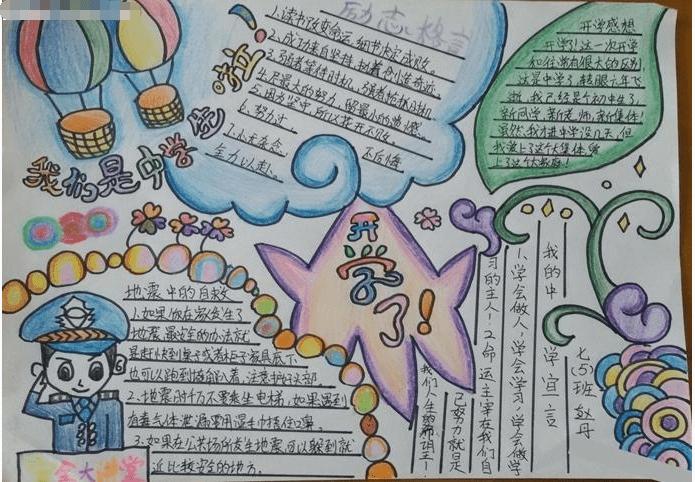 我们是中学生啦!
励志格言
1.读书改变命运,细节决定成败。
2.成功来自坚持,执着创造奇迹。
3.弱者等待时机,强者抢抓时机
4.尽最大的努力,留最小的遗憾。
5.因为坚守,所以花开不败。
6.努力过
不后悔
全力以赴。
开学感想
开学了!这一次开学
和往常有很大的区别
这是中学了,转眼六年飞
逝,我已经是个初中生了,
新同学,新老师,新集体!
虽然我才进中学没几天,但
我爱上了这个大集体,爱
上了这个大家庭!
开学了!
地震中的自救
1.如果你在家发生了
地震,最安全的办法就
是赶快到桌子或者柜子家具底下
也可以跑到墙角趴着,注意护好头部
2.地震时千万不要乘坐电梯,如果遇到
有毒气体泄漏要用湿毛巾捂住口鼻。
3.如果在公共场所发生地震,可以躲到就
近比较安全的地方。
安全大讲堂
我的中学宣言
1.学会做人,学会学习,学会做学
习的主人!2.命运主宰在我们自
己,努力就是
我们人生的
七(5)班